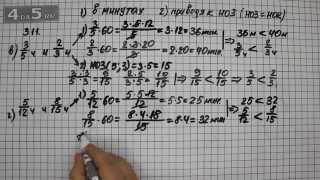 4 до 5.ru
311.
1) в минутах 2) приводя к НОЗ (НОЗ=НОК)
в) 3/5 ч и 2/3 ч
1) 3/5·60=3·5·12/5=3·12=36мин. ⇒ 36м < 40м
2/3·60=2·3·20/3=2·20=40мин. 3/5ч < 2/3ч
2) НОЗ(5;3)=3·5=15
3·3/5·3=9/15 2·5/3·5=10/15 ⇒ 9/15<10/15 ⇒ 3/5<2/3
г) 5/12 ч и 8/15 ч
1) 5/12·60=5·5·12/12=5·5=25мин. ⇒ 25<32
8/15·60=8·4·15/15=8·4=32мин 5/12<8/15